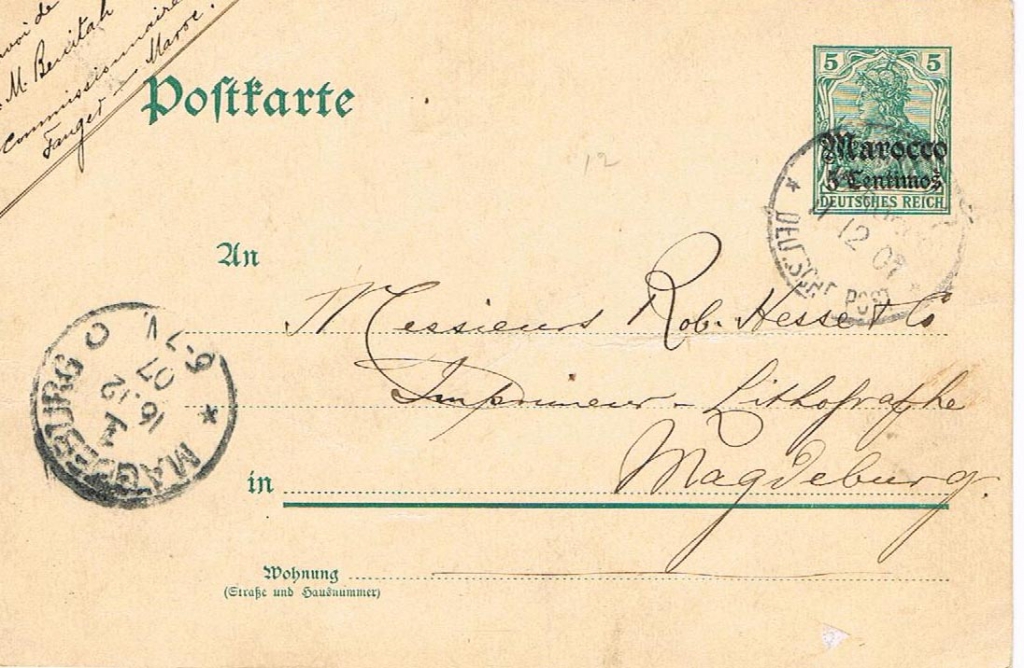 Envoi de
M. Benitah
Commissionnaire
Tanger – Maroc.
Postkarte
5 5
Marocco
5 Centimos
DEUTSCHES REICH
12 07
DEUTSCHE POST
12
An
Messieurs Rob. Hesse & Co
Imprimeur – Lithografhe
in Magdeburg.
Wohnung
(Straße und Hausnummer)
MAGDEBURG
16.12
07
6-7 N.